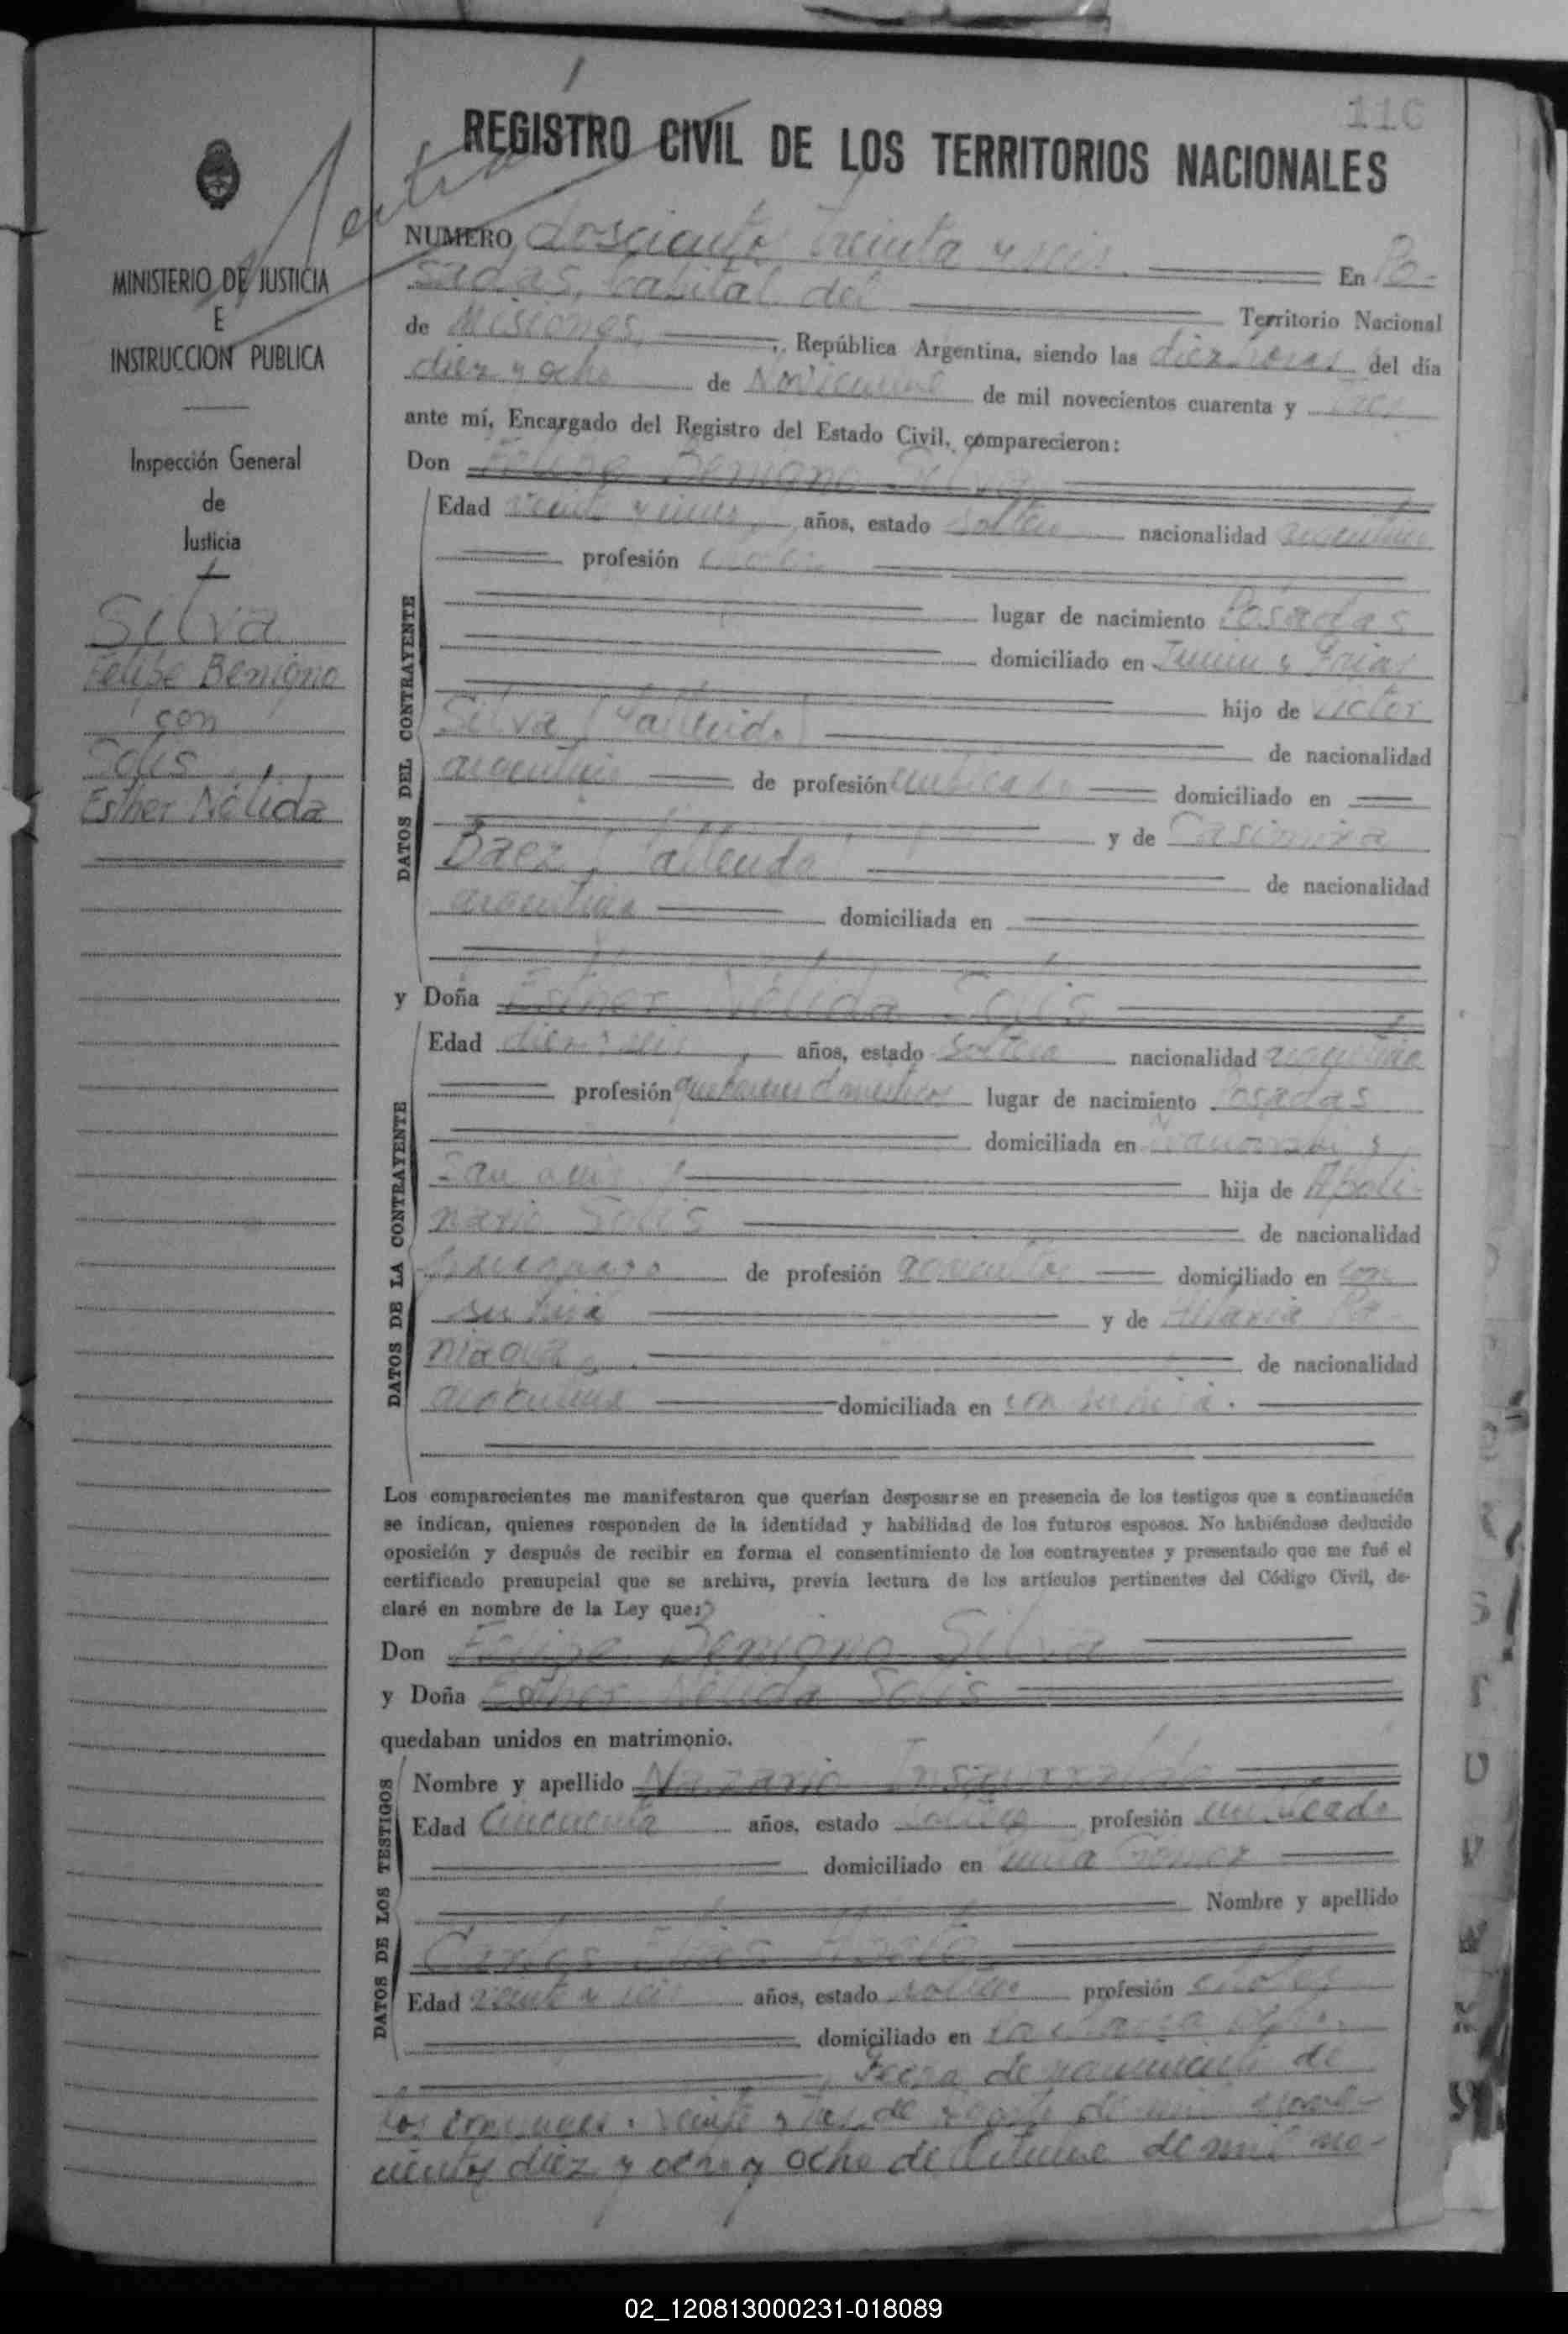 116
REGISTRO CIVIL DE LOS TERRITORIOS NACIONALES
MINISTERIO DE JUSTICIA
E
INSTRUCCION PUBLICA
Inspección General
de
Justicia
Silva
Felipe Benigno
con
Solis
Esther Nélida
NUMERO dosciento treinta y seis. En Po-
sadas, Capital del Territorio Nacional
de Misiones, República Argentina, siendo las diez horas del día
diez y ocho de Noviembre de mil novecientos cuarenta y
ante mí, Encargado del Registro del Estado Civil, comparecieron:
Don Felipe Benigno Silva
Edad veinte y años, estado soltero nacionalidad argentino
profesión
DATOS DEL CONTRAYENTE
lugar de nacimiento Posadas
domiciliado en Junin y Frias
hijo de Victor
Silva (fallecido) de nacionalidad
argentino de profesión domiciliado en
y de Casimira
Baez, fallecida de nacionalidad
argentina domiciliada en
y Doña Esther Nélida Solis
Edad diez y seis años, estado soltera nacionalidad argentina
profesión quehaceres domesticos lugar de nacimiento Posadas
DATOS DE LA CONTRAYENTE
domiciliada en y
San Luis hija de Apoli-
nario Solis de nacionalidad
de profesión domiciliado en con
su hija y de Maria Pa-
niagua de nacionalidad
argentina domiciliada en con su hija.
Los comparecientes me manifestaron que querían desposarse en presencia de los testigos que a continuación
se indican, quienes responden de la identidad y habilidad de los futuros esposos. No habiéndose deducido
oposición y después de recibir en forma el consentimiento de los contrayentes y presentado que me fué el
certificado prenupcial que se archiva, previa lectura de los artículos pertinentes del Código Civil, de-
claré en nombre de la Ley que:
Don Felipe Benigno Silva
y Doña Esther Nélida Solis
quedaban unidos en matrimonio.
DATOS DE LOS TESTIGOS
Nombre y apellido Nazario Insaurralde
Edad Cincuenta años, estado soltero profesión
domiciliado en
Nombre y apellido
Carlos
Edad veinte y seis años, estado soltero profesión chofer
domiciliado en
Fecha de nacimiento de
los conyuges: veinte y tres de Agosto de mil nove-
cientos diez y ocho y ocho de Octubre de mil no-
02_120813000231-018089